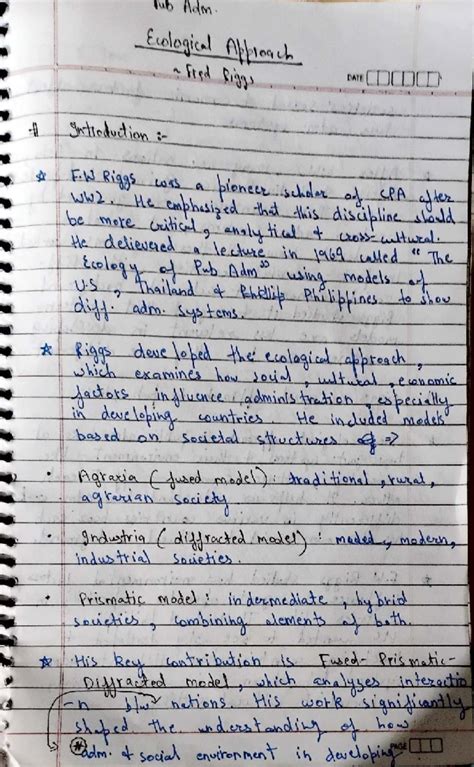 Pub Adm.
Ecological Approach
~ Fred Riggs
DATE
Introduction :-
F.W Riggs was a pioneer scholar of CPA after
WW2. He emphasized that this discipline should
be more critical, analytical & cross-cultural.
He delievered a lecture in 1969 called "The
Ecology of Pub Adm" using models of
U.S, Thailand & Philippines to show
diff. adm. systems.
Riggs developed the ecological approach,
which examines how social, cultural, economic
factors influence administration, especially
in developing countries He included models
based on societal structures =>
• Agraria (fused model): traditional, rural,
agrarian society
• Industria (diffracted model): moded, modern,
industrial societies.
• Prismatic model: indermediate, hybrid
societies, combining alements of both.
His key contribution is Fused-Prismatic-
Diffracted model, which analyzes interactio
-n b/w nations. His work significantly
shaped the understanding of how
adm. & social environment in developing
PAGE